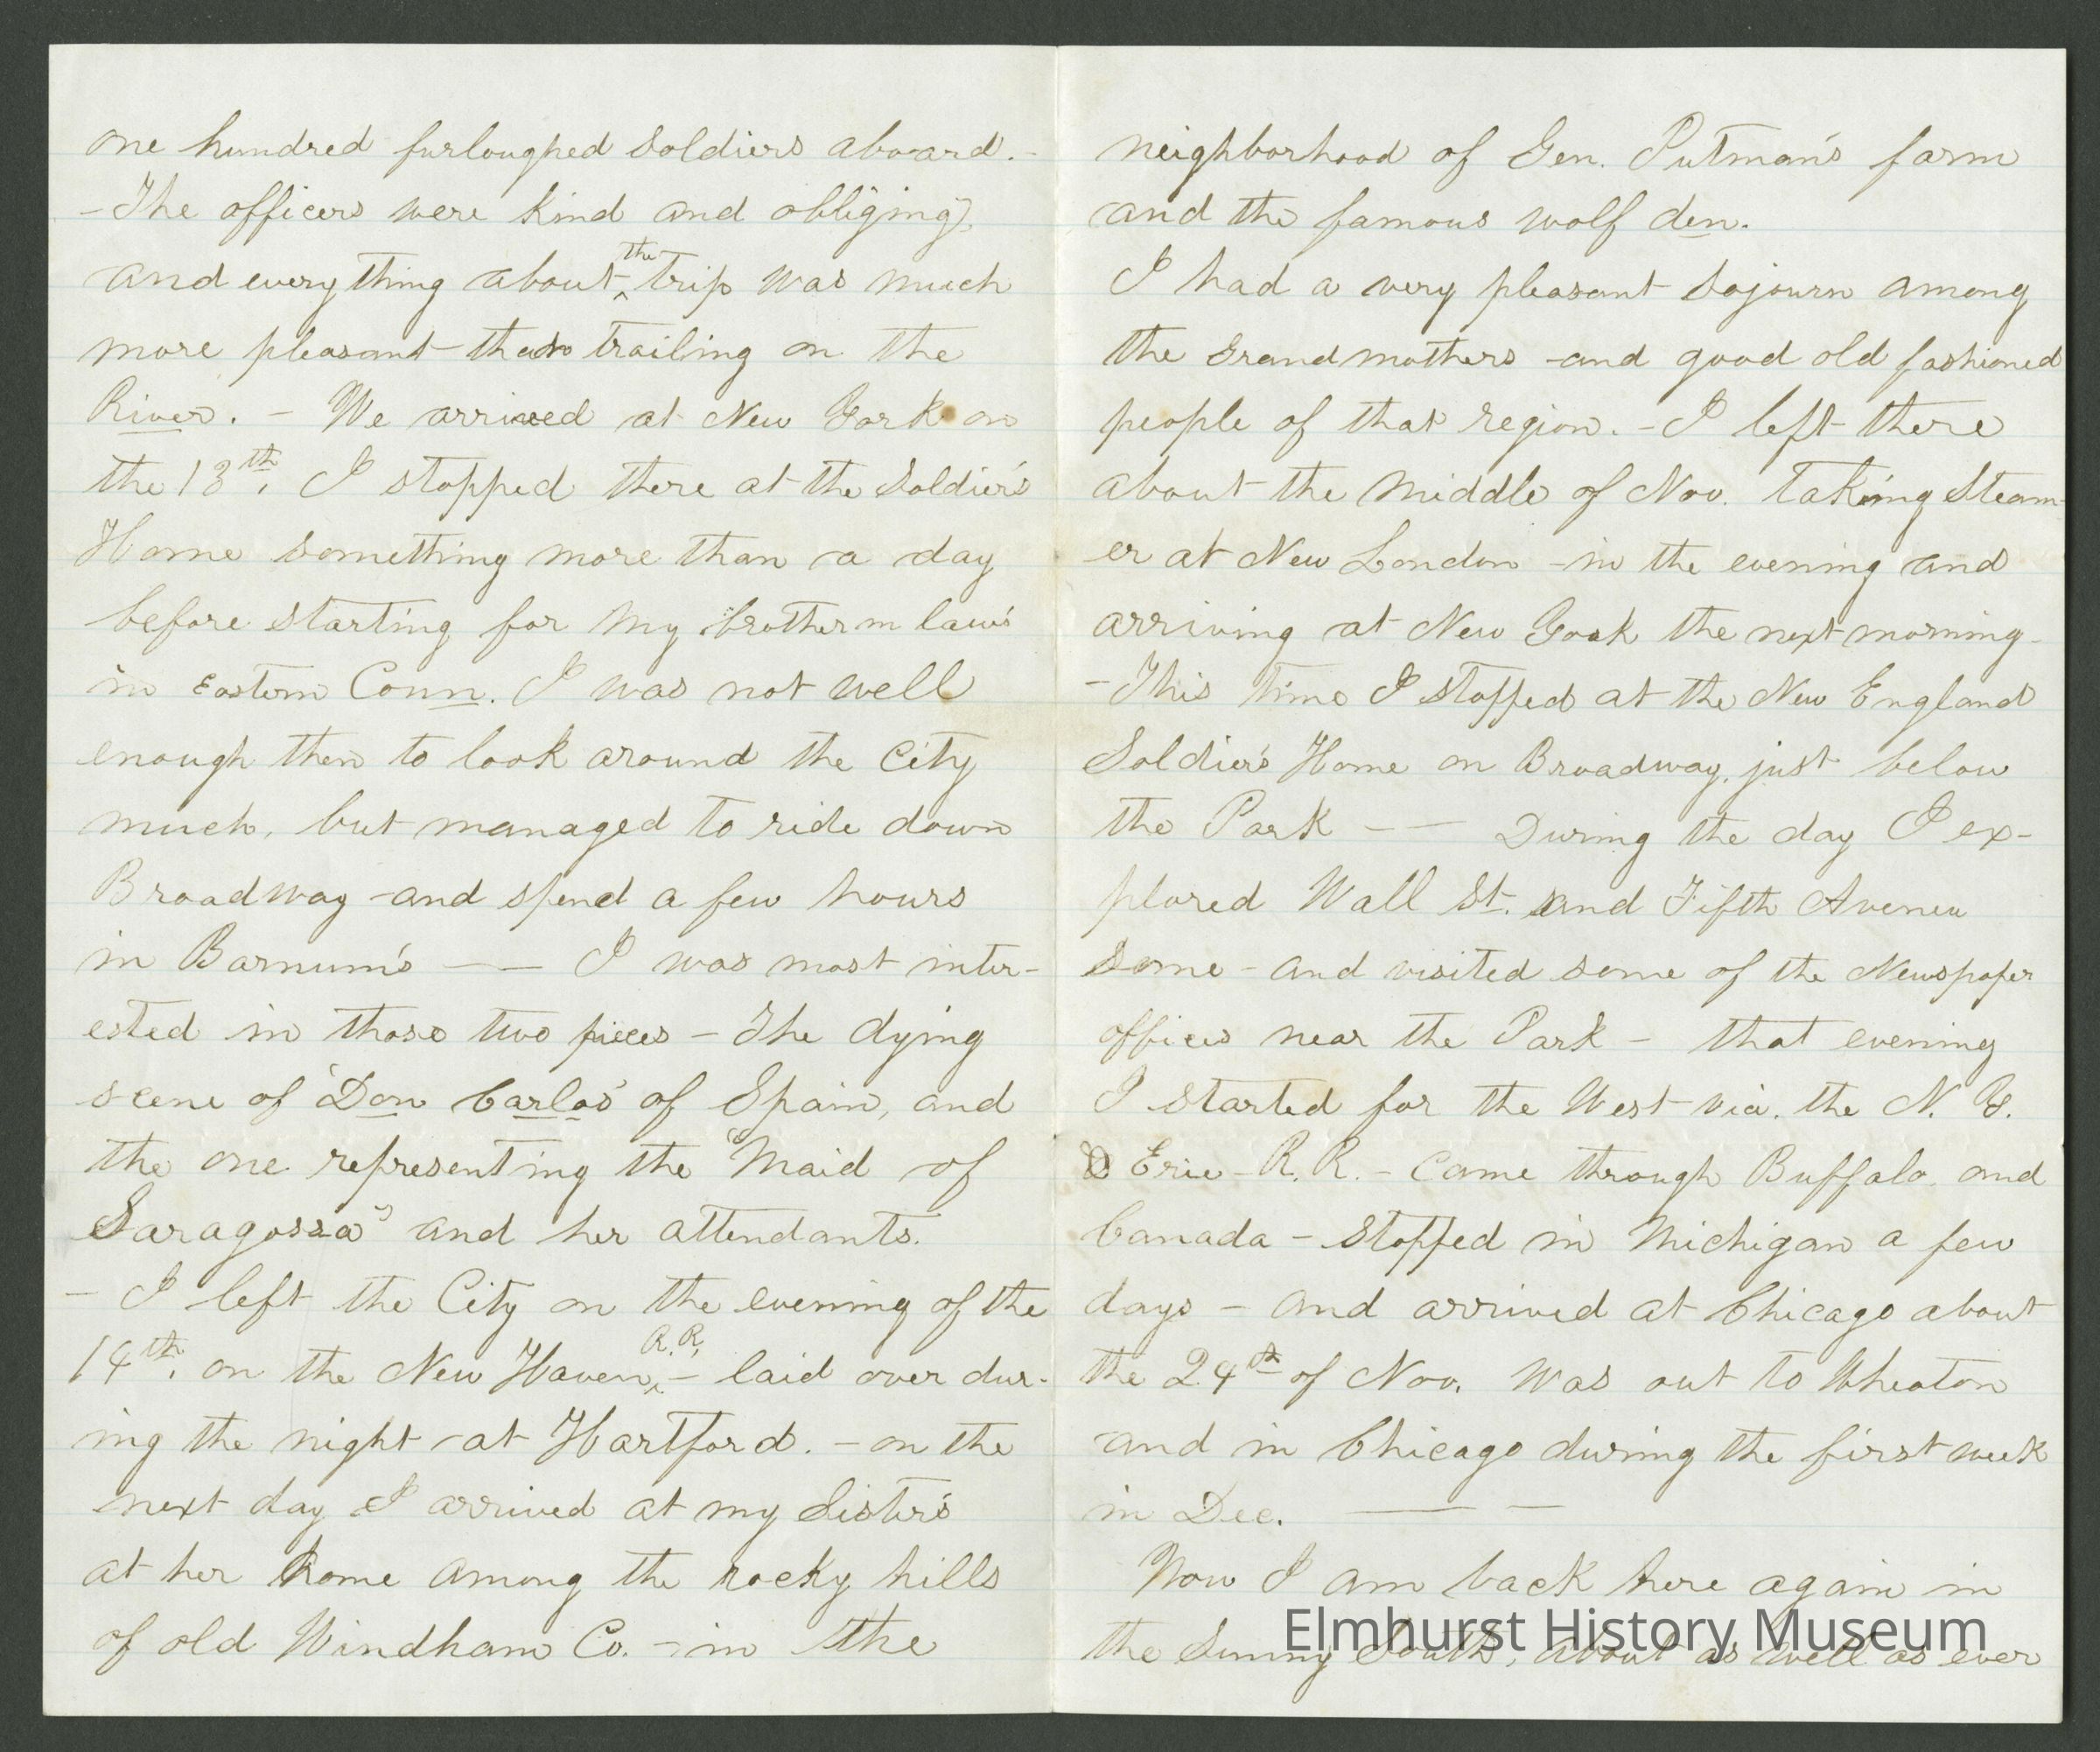 one hundred furloughed soldiers aboard. -
- The officers were kind and obliging,
and everything about the trip was much
more pleasant than trailing on the
River. - We arrived at New York on
the 13th. I stopped there at the Soldier's
Home something more than a day
before starting for my brother in law's
in Eastern Conn. I was not well
enough then to look around the City
much, but managed to ride down
Broadway - and spend a few hours
in Barnum's —— I was most inter-
ested in those two pieces - The dying
scene of "Don Carlos" of Spain, and
the one representing the "Maid of
Saragossa" and her attendants.
- I left the City on the evening of the
14th. on the New Haven R.R. - laid over dur-
ing the night - at Hartford. - on the
next day I arrived at my Sister's
at her home among the rocky hills
of old Windham Co. - in the
neighborhood of Gen. Putman's farm
and the famous wolf den.
I had a very pleasant sojourn among
the Grandmothers - and good old fashioned
people of that region. - I left there
about the middle of Nov. taking Steam-
er at New London - in the evening and
arriving at New York the next morning -
- This time I stopped at the New England
Soldier's Home on Broadway, just below
the Park —— During the day I ex-
plored Wall St. and Fifth Aveneu
some - and visited some of the Newspaper
offices near the Park - that evening
I started for the West via. the N. Y.
& Erie - R. R. - Came through Buffalo and
Canada - Stopped in Michigan a few
days - and arrived at Chicago about
the 24th of Nov. Was out to Wheaton
and in Chicago during the first week
in Dec. ——
Now I am back here again in
the Sunny South, about as well as ever
Elmhurst History Museum